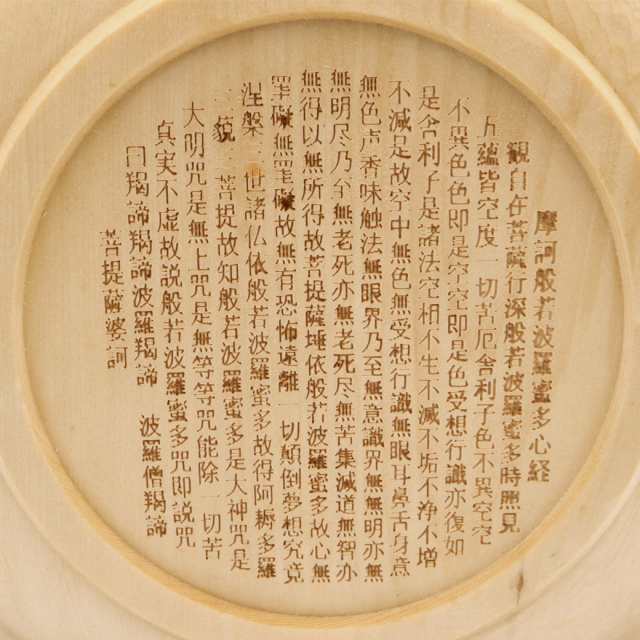 摩訶般若波羅蜜多心経
観自在菩薩行深般若波羅蜜多時照見
五蘊皆空度一切苦厄舎利子色不異空空
不異色色即是空空即是色受想行識亦復如
是舎利子是諸法空相不生不滅不垢不浄不増
不減是故空中無色無受想行識無眼耳鼻舌身意
無色声香味触法無眼界乃至無意識界無無明亦無
無明尽乃至無老死亦無老死尽無苦集滅道無智亦
無得以無所得故菩提薩埵依般若波羅蜜多故心無
罣礙無罣礙故無有恐怖遠離一切顛倒夢想究竟
涅槃三世諸仏依般若波羅蜜多故得阿耨多羅
三藐三菩提故知般若波羅蜜多是大神咒是
大明咒是無上咒是無等等咒能除一切苦
真実不虚故説般若波羅蜜多咒即説咒
曰羯諦羯諦波羅羯諦 波羅僧羯諦
菩提薩婆訶